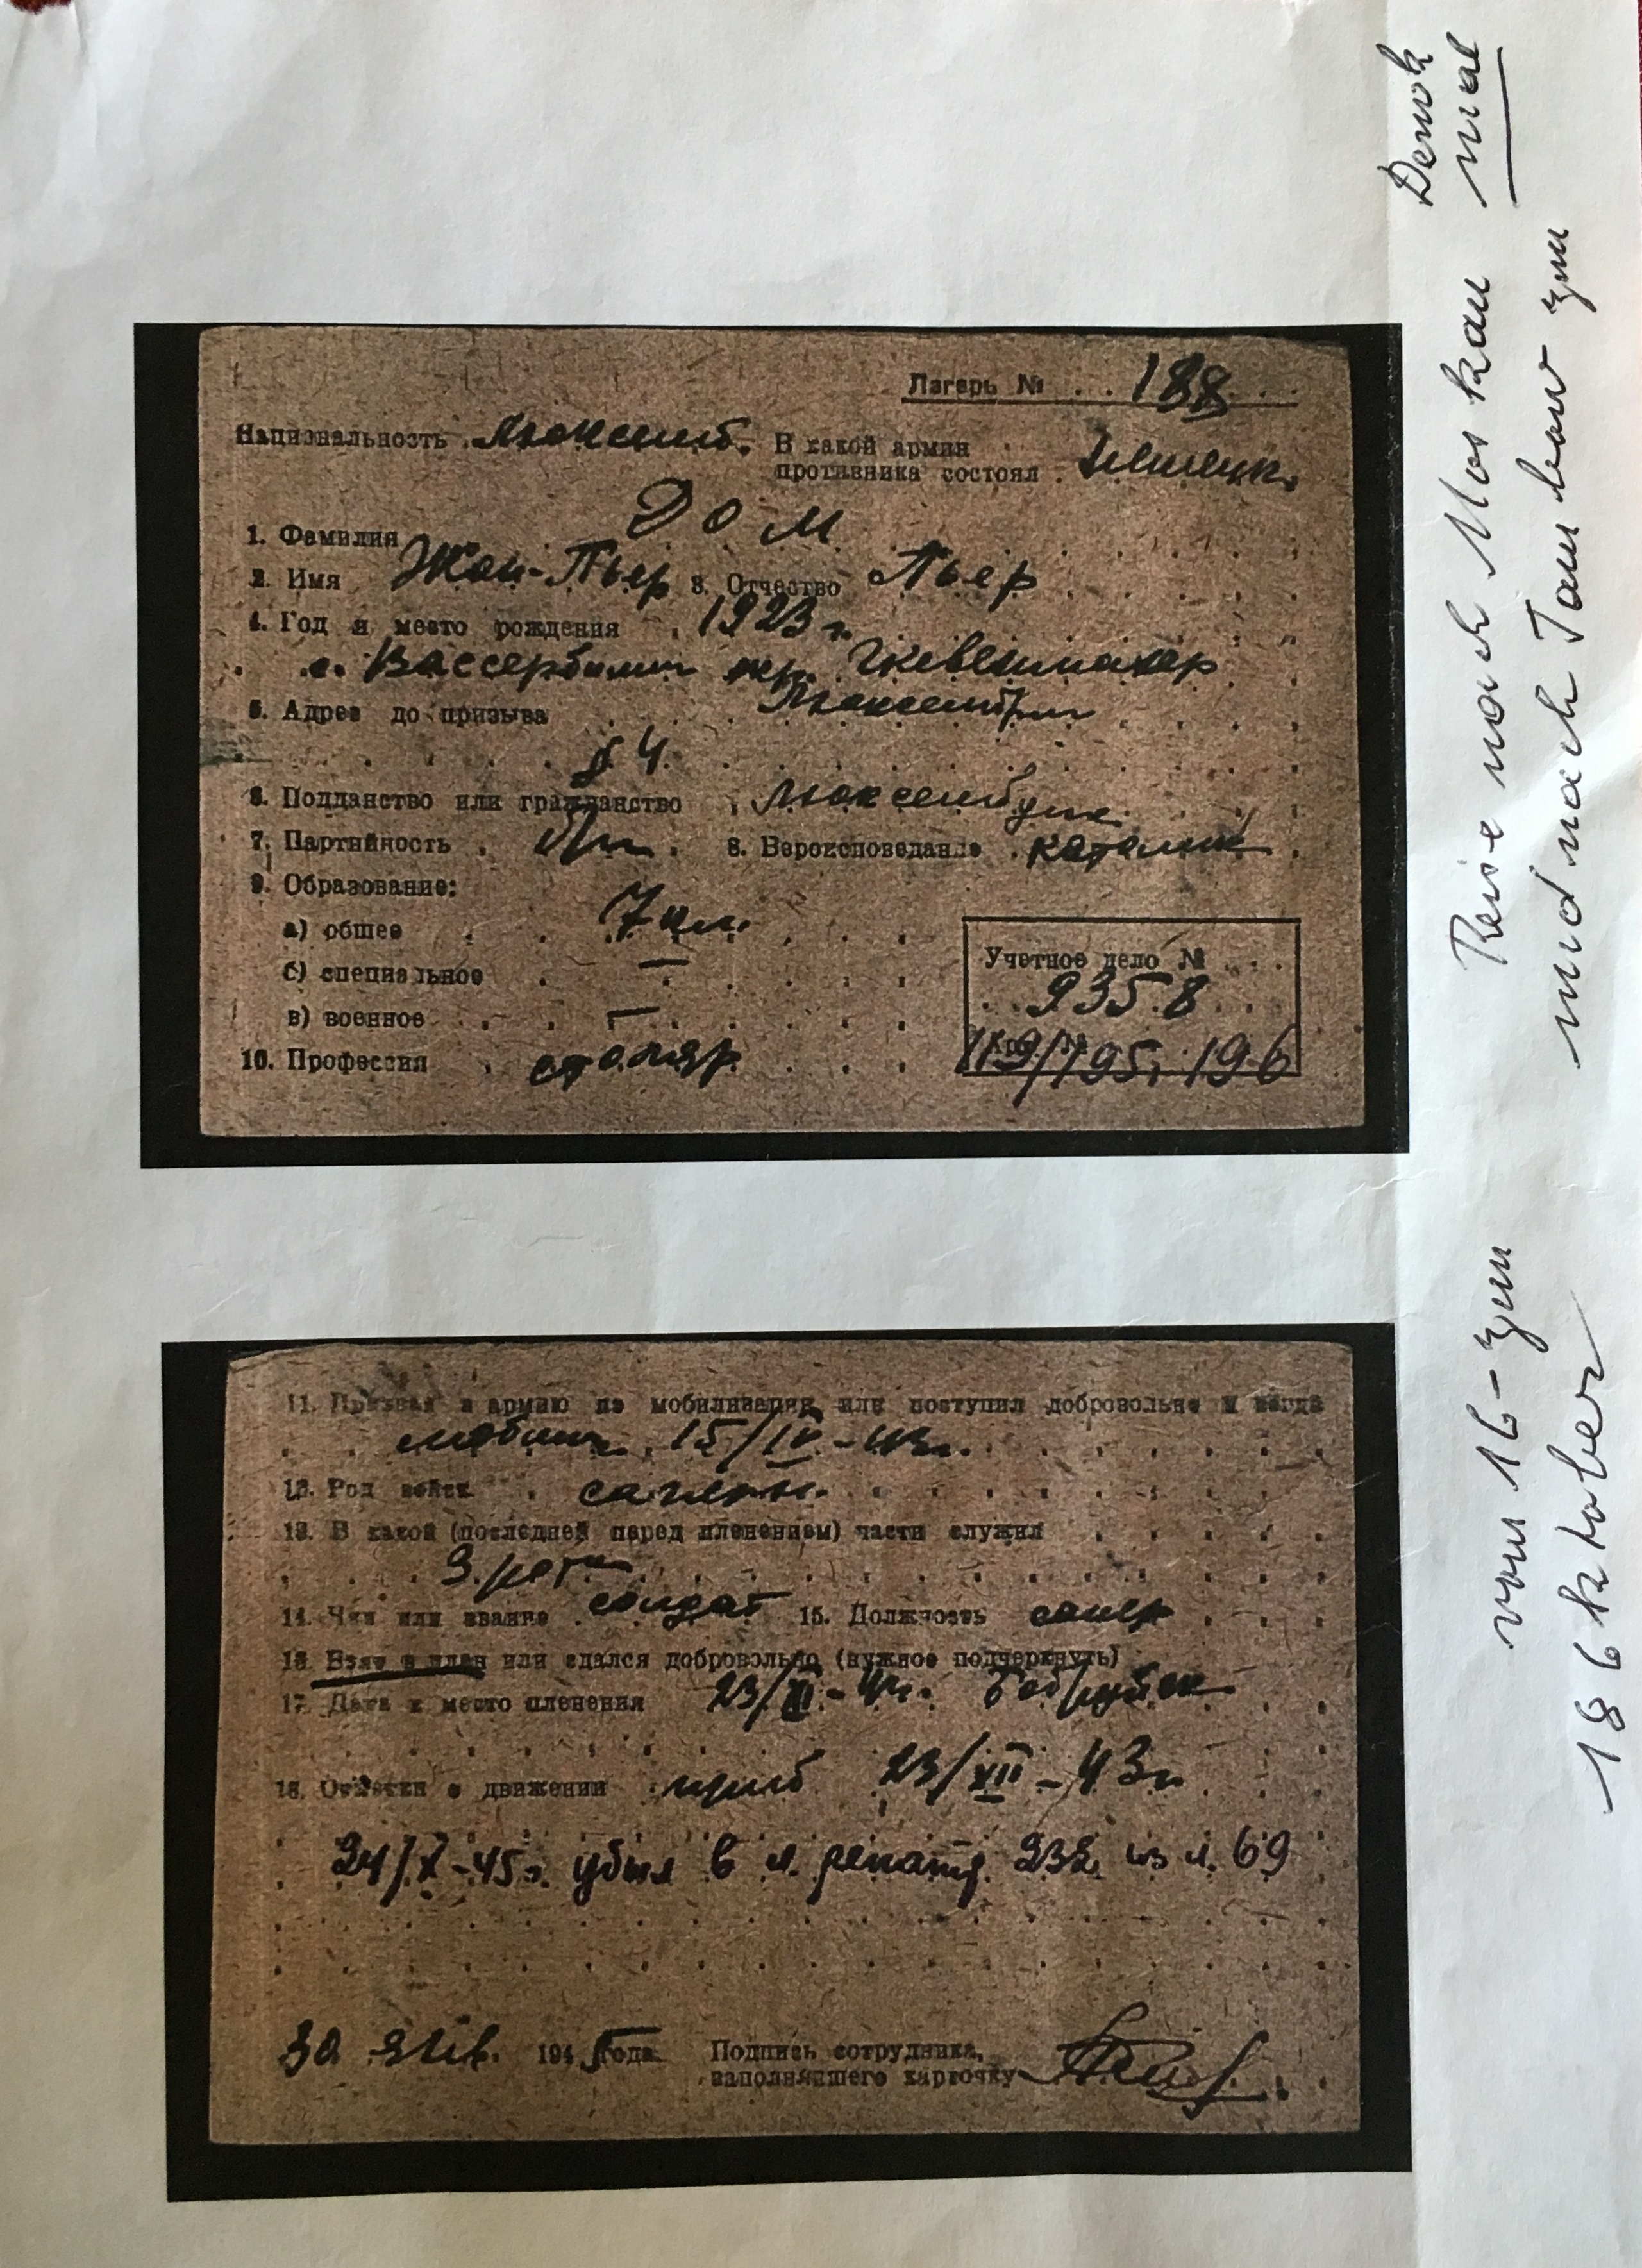 Лагерь № 188
Национальность Люксемб. В какой армии
противника состоял Немецк.
1. Фамилия Дом
2. Имя Жан-Пьер 3. Отчество Пьер
4. Год и место рождения 1923 г.
с. Вассербилиг окр. Гжевенмахер
5. Адрес до призыва Люксембург
д 4.
6. Подданство или гражданство Люксембург.
7. Партийность б/п 8. Вероисповедание католик
9. Образование:
а) общее 7 кл.
б) специальное —
в) военное —
10. Профессия столяр.
Учетное дело №
9358
119/195, 196
11. Призван в армию по мобилизации или поступил добровольно и когда
мобилиз. 15/IV-43г.
12. Род войск саперн.
13. В какой (последней перед пленением) части служил
3. рота
14. Чин или звание солдат 15. Должность сапер
16. Взят в плен или сдался добровольно (нужное подчеркнуть)
17. Дата и место пленения Бобруйск
18. Отметки о движении приб 23/XII-43г.
24/X-45г. убыл в л. репатр. 232 из л. 69
30 янв. 1945 года Подпись сотрудника,
заполнявшего карточку
Denk
mal
Reise nach Moskau
und nach Tambow zum
vum 16-zum
18 Oktober